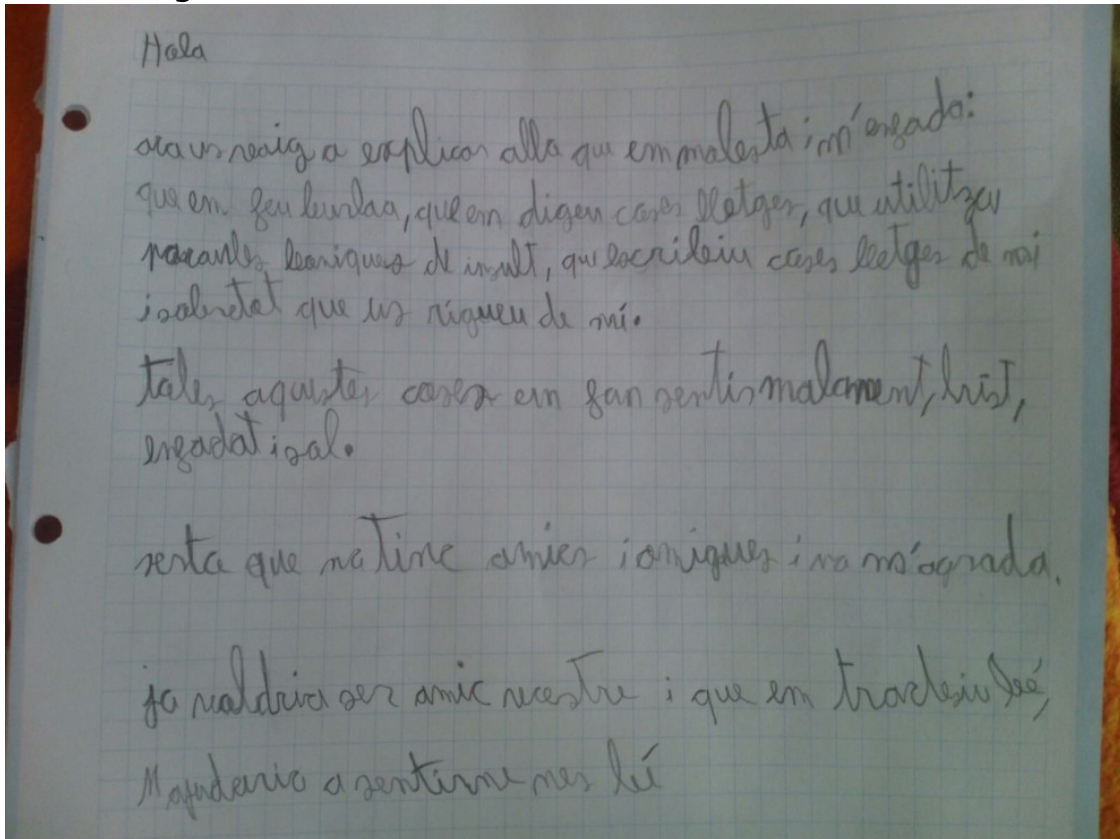 Hola
ara us vaig a explicar allo que em molesta i m'enfado:
que em feu burlaa, que em digeu coses lletges, que utilitzeu
paraules com de insult, que escribiu coses lletges de mi
i sobretot que us rigueu de mi.
totes aquestes coses em fan sentir malament, trist,
enfadat i sol.
sento que no tinc amics i amigues i no m'agrada.
jo voldria ser amic vostre i que em tracteiu bé,
M'ajudaria a sentirme mes bé